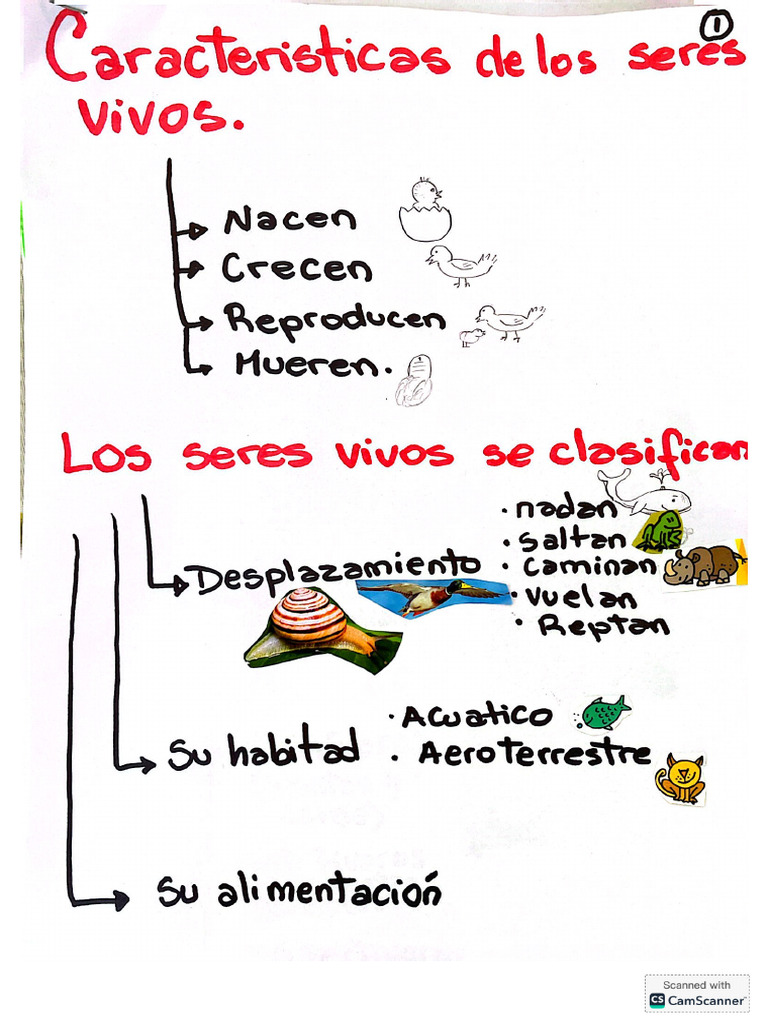 1
Caracteristicas de los seres
vivos.
Nacen
Crecen
Reproducen
Mueren.
Los seres vivos se clasifican
Desplazamiento
· nadan
· saltan
· caminan
· vuelan
· Reptan
Su habitad
· Acuatico
· Aeroterrestre
Su alimentación
Scanned with
CS CamScanner